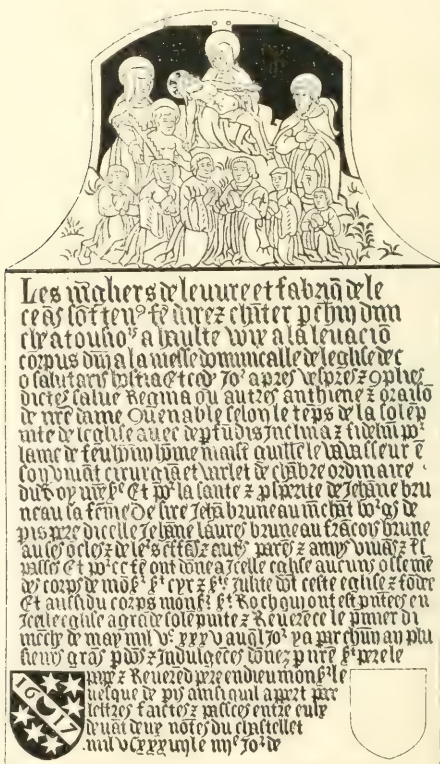 Les mgliers de leuure et fabriq de le
ceās sōt tenꝰ fe direz chāter p chūn dimn
che a tousioᵘˢ a haulte voix a la leuaciō
corpus dm̄ a la messe dominicalle de leglise de c
o salutaris hostia Et ced Joʳ apres vespres z 9plies
dictes salue Regina ou autres anthiene z orailō
de nr̄e dame Ouenable selon le tēps de la solēp
nite de leglise avec de pfūdis Inclina z fidelm̄ poʳ
lame de feu maist guille le vavasseur ē
son viuāt cirurgiā et varlet de chābre ordinaire
du Roy nr̄e sʳ Et poʳ la sante z pspite de Jehāne bru
neau sa fēme De sire Jehā bruneau mchāt boʳgˢ de
pis pere dicelle Jehāne laures bruneau frācois brune
au ses ocles z de leʳs effās autˢ parēs z amys viuās z tˢ
passes Et poʳ ce fe ont dōne a Jcelle eglise aucuns osseme
des corps de mōsʳ sᵗ cyr z sᵗᵉ Julite dōt ceste eglise ē fōdee
Et aussi du corps monsʳ sᵗ Roch qui ont est pntees en
Jcelle eglise a grāde solēpnite z Reuerēce le pmier di
mēche de may mil vᶜ xxxv auql Joʳ ya par chūn an plu
sieurs grās pdōs z Indulgēces dōnez p nr̄e sᵗ pere le
pape z Reuerēd pere en dieu monsʳ le
uesque de pis ainsi quil apert par
lettres faictes z passees entre eulx
deuāt deux notēs du chastellet
mil vcxxxvij le iijᵉ Joʳ de
1617